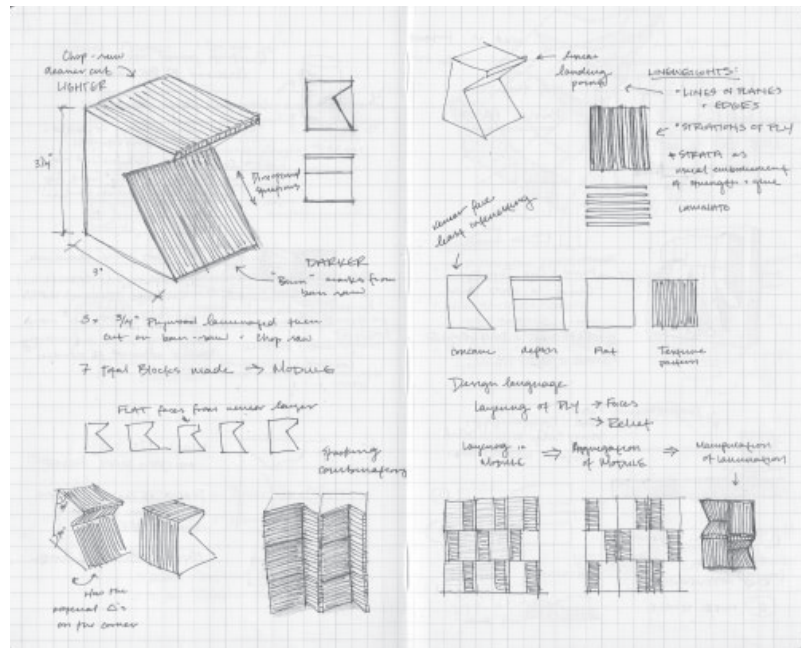 Chop-saw
cleaner cut
LIGHTER
3/4"
3"
Directional
DARKER
"Burn" marks from
ban saw
3/4" Plywood laminated then
cut on ban-saw + chop saw
7 total Blocks made → MODULE
FLAT faces from veneer layer
Stacking
combinations
How the
material Δ's
on the corner
linear
landing
point
LINEWEIGHTS:
• LINES OF PLANES
+ EDGES
• STRIATIONS OF PLY
STRATA as
visual embodiment
of strength + glue
LAMINATE
veneer face
least interesting
concave
depth
flat
Texture
pattern
Design language
Layering of PLY → Faces
→ Relief
Layering in
MODULE
⇒ Aggregation
of MODULE
⇒ Manipulation
of lamination